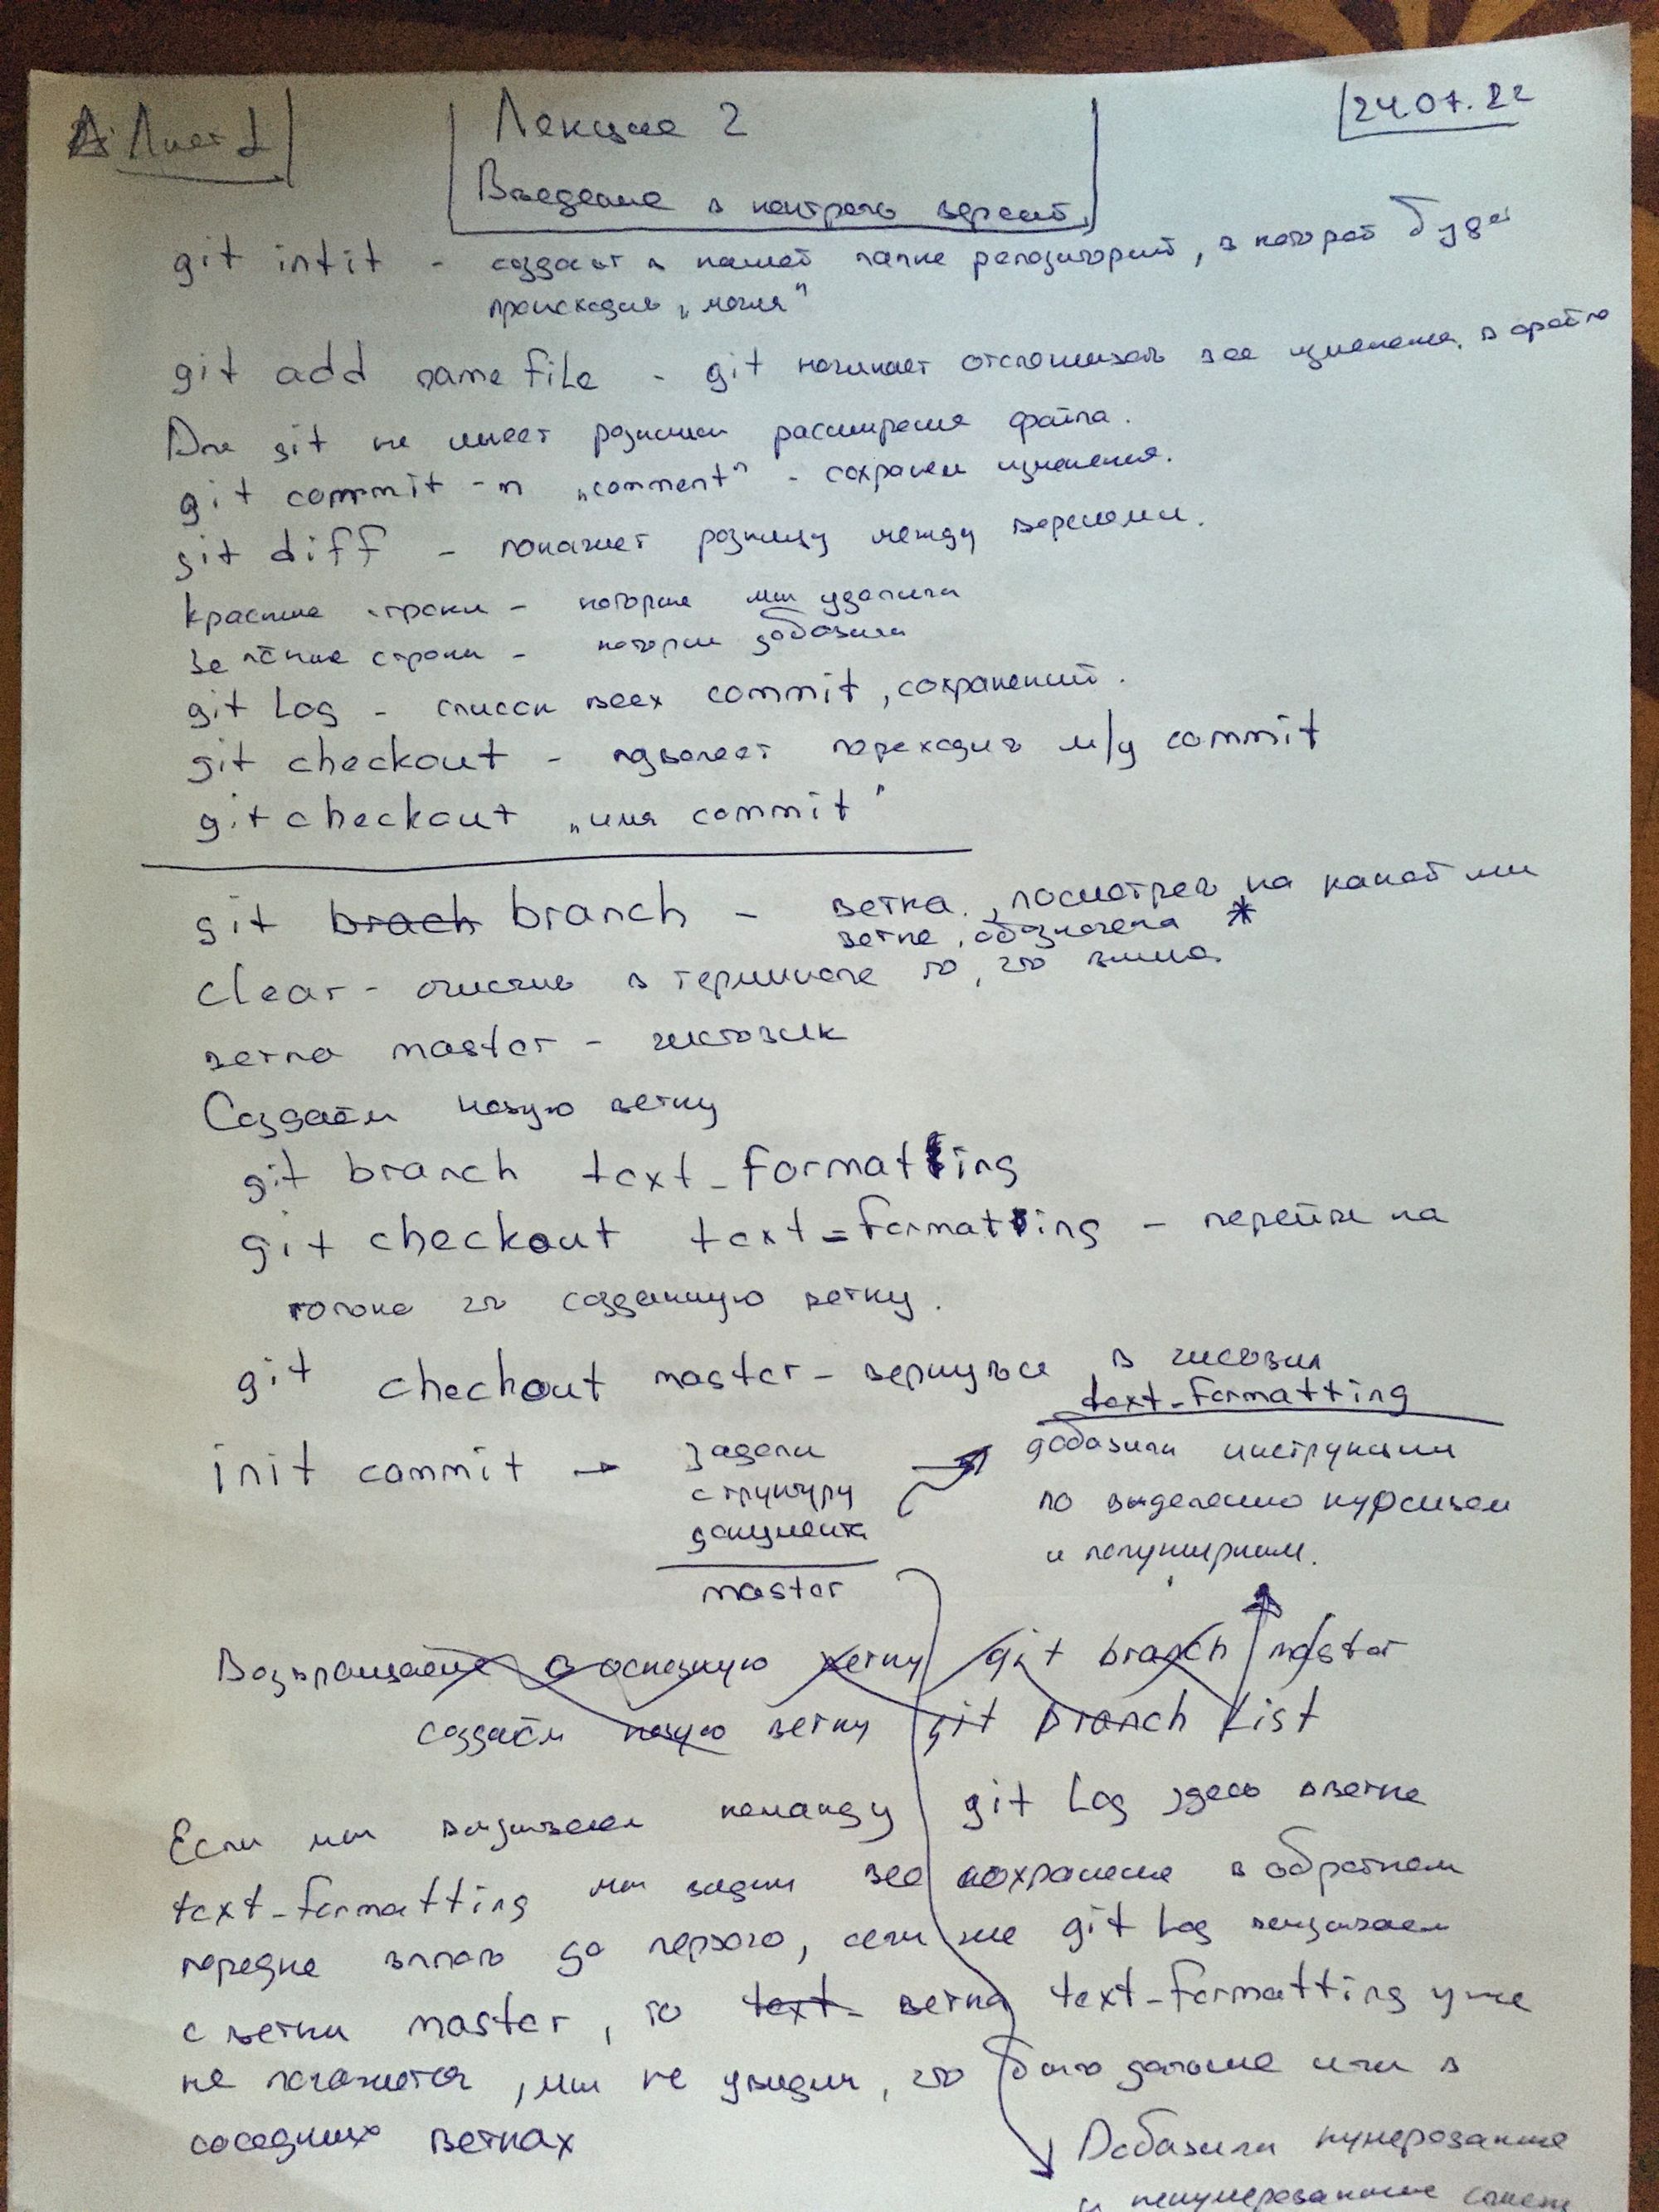 Лист 1
Лекция 2
24.07.22
Введение в контроль версий
git intit - создает в нашей папке репозиторий, в которой будет
происходить "магия"
git add namefile - git начинает отслеживать все изменения в файле
Для git не имеет разницы расширение файла.
git commit -m "comment" - сохранен изменения.
git diff - покажет разницу между версиями.
Красные строки - которые мы удалили
Зелёные строки - которые добавили
git Log - список всех commit, сохранений.
git checkout - позволяет переходить м/у commit
git checkout "имя commit"
git brach branch - ветка, посмотреть на какой мы
ветке, обозначена *
clear - очистить в терминале то, что выше
ветка master - чистовик
Создаём новую ветку
git branch text_formatting
git checkout text=formatting - перейти на
только что созданную ветку.
git checkout master - вернуться в чистовик
init commit → задали
структуру
документа
master
text_formatting
добавили инструкции
по выделению курсивом
и полужирным.
Возвращаемся в основную ветку git branch master
создаём новую ветку git branch List
Если мы вызываем команду git Log здесь в ветке
text_formatting мы видим все сохранения в обратном
порядке вплоть до первого, если же git Log вызываем
с ветки master, то text_ ветка text_formatting уже
не покажется, мы не увидим, что было дальше или в
соседних ветках
Добавили нумерованные
и ненумерованные списки